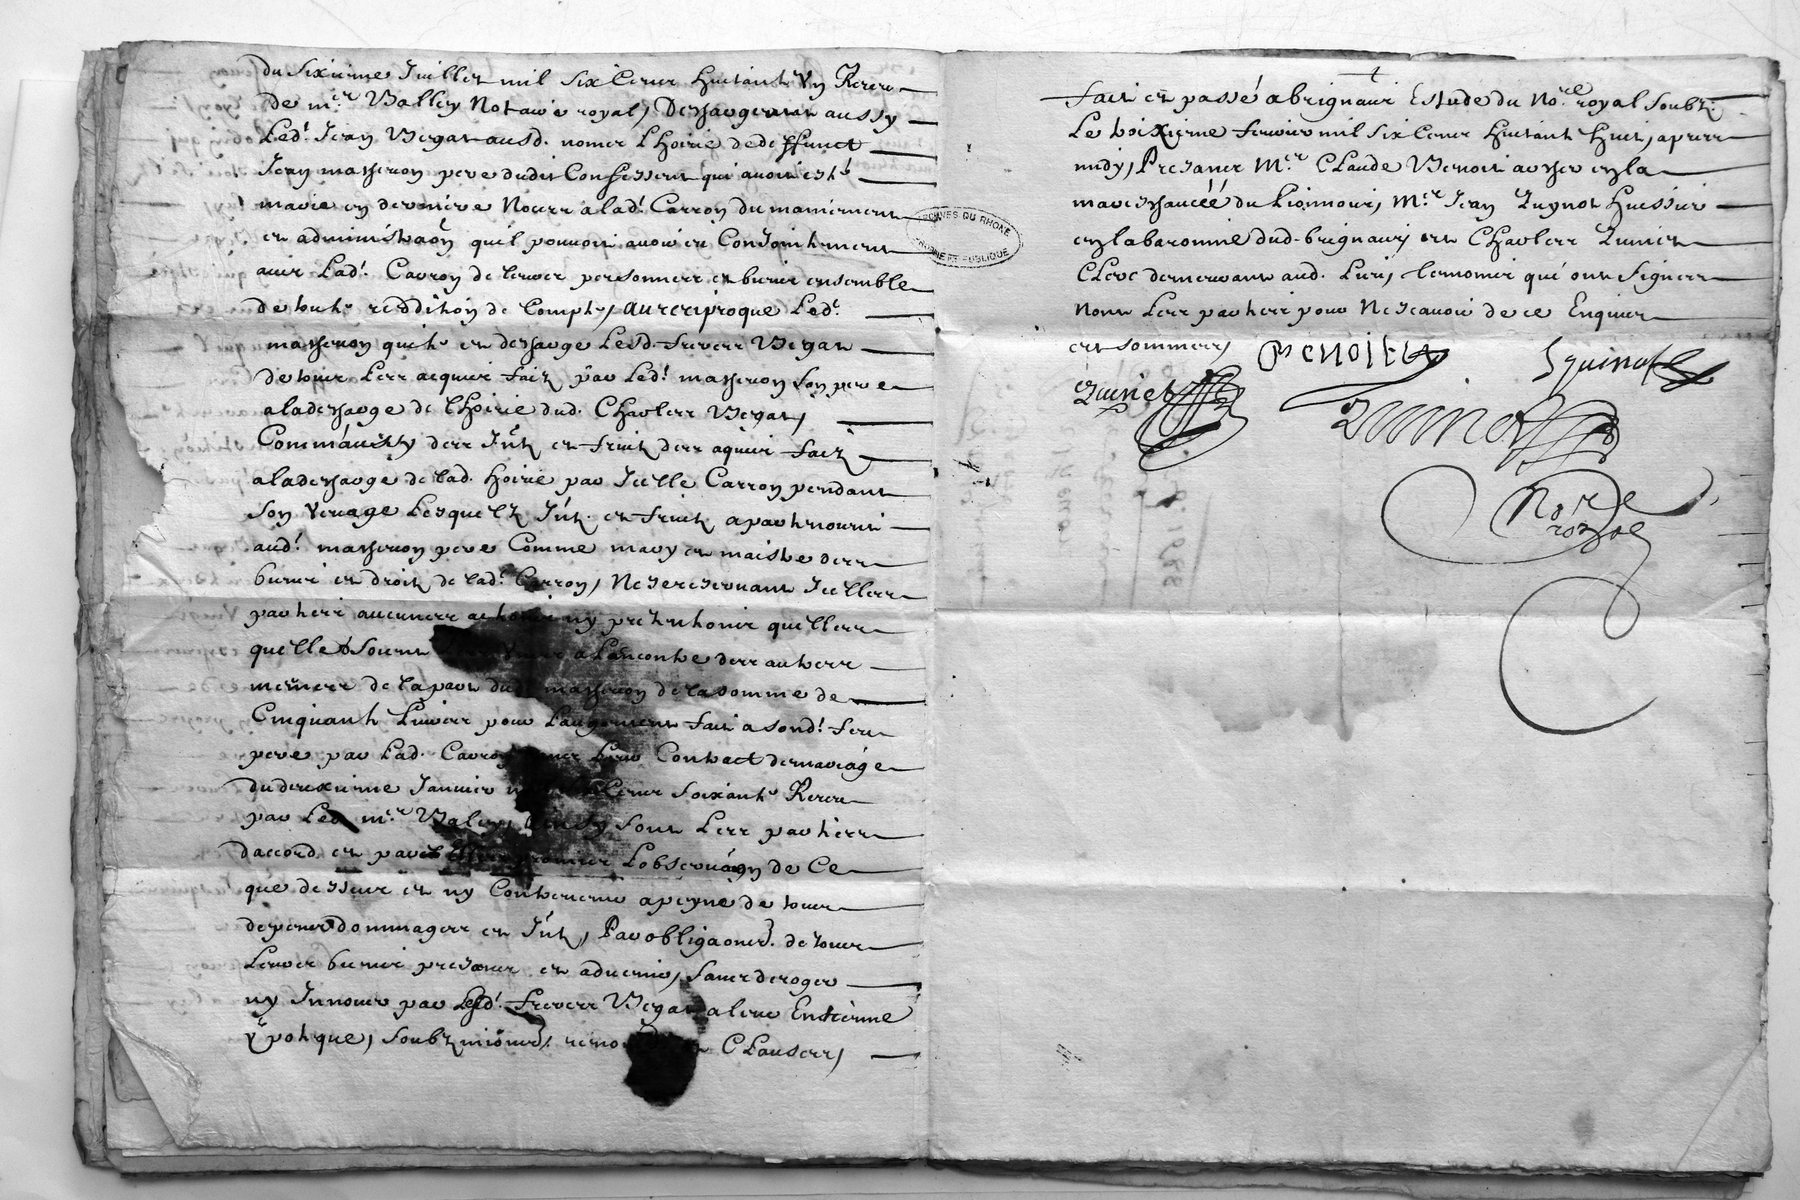 du sixieme Juillet mil six Cens huictante Un Receu
de me.r Valley Notaire royal, Deschargeant aussy
Led.t Jean Vegat ausd. noms L hoirie de deffunct
Jean masseron pere dudit Confesseur qui avoit esté
marié en derniere Nopces a lad.t Carron du maniement
et administraon quil pouvoit avoir eu Conjointement
avec Lad.t Carron de leurs personnes et biens ensemble
de toute reddition de Compte, au reciproque Led.t
masseron quicte et descharge Lesd. freres Vegat
de tous Les acquis faiz par Led.t masseron son pere
a la descharge de l hoirie dud. Charles Vegat,
Comme aussy des Intz et fruitz des aquis faiz
a la descharge de lad. hoirie par Icelle Carron pendant
son veuvage Lesquelz Intz et fruitz apartenoint
aud.t masseron pere Comme mary et maistre des
biens et droitz de lad.t Carron, Ne se reservant Icelles
parties aucunes actions ny pretentions quelles
quelles soient a Lencontre des autres
mesmes de la part dud masseron de la somme de
Cinquante Livres pour Laugment fait a sond.t feu
pere par Lad. Carron Leur Contract de mariage
du deuxieme Janvier Cens soixante Receu
par Led me.r Valey, sont Les parties
daccord et Lobservaon de Ce
que dessus et ny Contrevenir a peyne de tous
despens dommages et Intz, Par obligaons. de tous
Leurs biens presens et advenir, sans deroger
ny Innover par Lesd.t freres Vegat a leur Entienne
ypotique, soubzmions. Clauses,
faict et passé a brignais Estude du No.re royal soubz.
Le troixieme fevrier mil six Cens huictante huict, apres
midy, Presans Me.r Claude Benoit archer en la
mareschaucéé du Lionnois, Me.r Jean Quynot huissier
en la baronnie dud. brignais et Charles Quinet
Clerc demeurant aud. Lieu, temoins qui ont signez
non Les parties pour Ne scavoir de ce Enquis
et sommes,
Benoist
J quinot
Quinet
No.re
royal
ARCHIVES DU RHONE